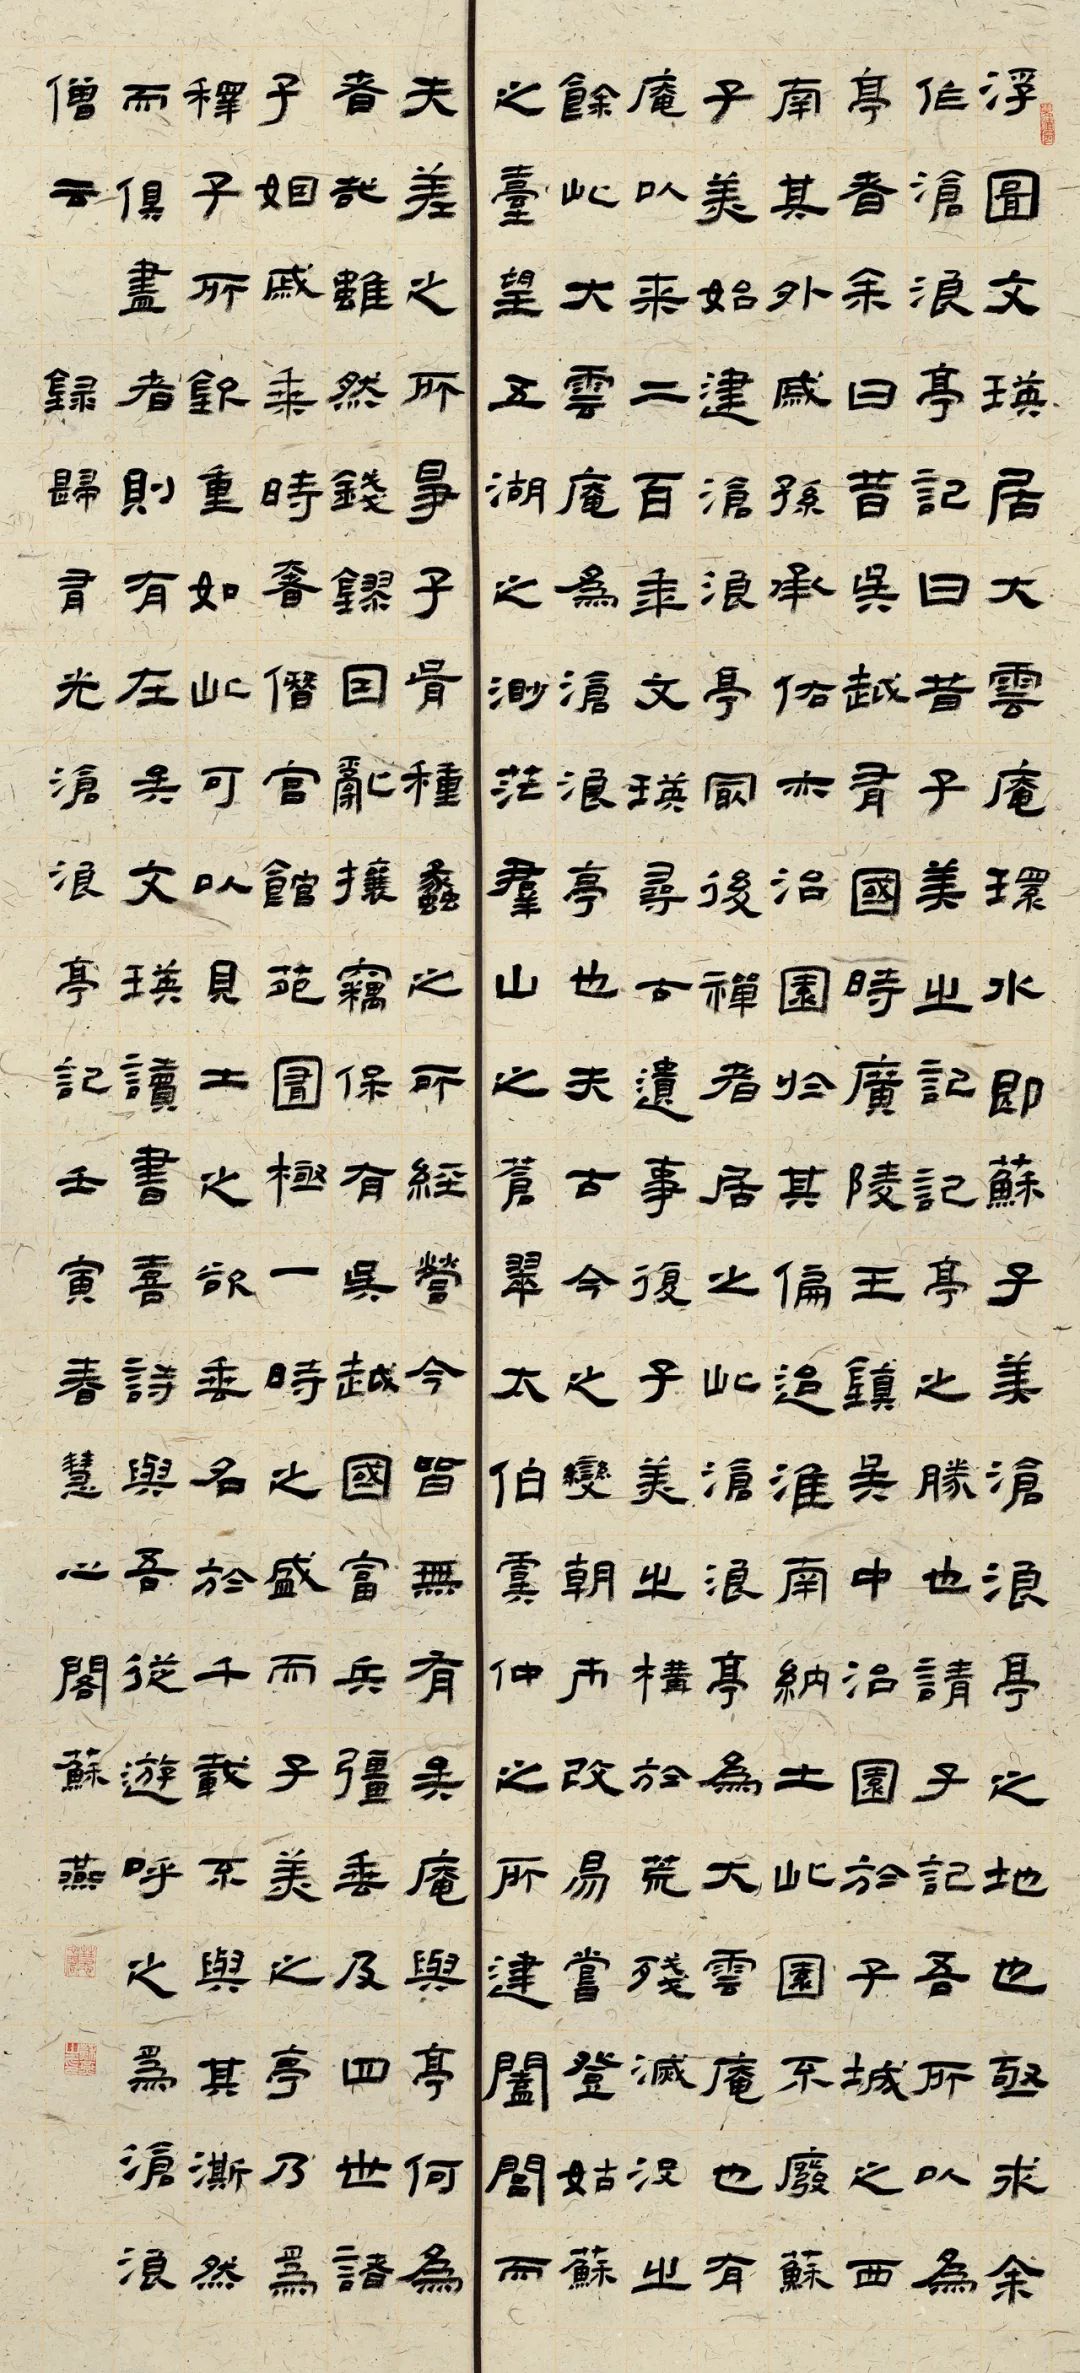 浮圖文瑛居大雲庵環水即蘇子美滄浪亭之地也亟求余
作滄浪亭記曰昔子美之記記亭之勝也請子記吾所以為
亭者余曰昔吳越有國時廣陵王鎮吳中治園於子城之西
南其外戚孫承佑亦治園於其偏迨淮南納土此園不廢蘇
子美始建滄浪亭最後禪者居之此滄浪亭為大雲庵也有
庵以来二百年文瑛尋古遺事復子美之構於荒殘滅没之
餘此大雲庵為滄浪亭也夫古今之變朝市改易嘗登姑蘇
之臺望五湖之渺茫羣山之蒼翠太伯虞仲之所建闔閭而
夫差之所爭子胥種蠡之所經營今皆無有矣庵與亭何為
者哉雖然錢鏐因亂攘竊保有吳越國富兵彊垂及四世諸
子姻戚乘時奢僭宮館苑囿極一時之盛而子美之亭乃為
釋子所欽重如此可以見士之欲垂名於千載不與其澌然
而俱盡者則有在矣文瑛讀書喜詩與吾從遊呼之為滄浪
僧云 録歸有光滄浪亭記壬寅春慧心閣蘇燕